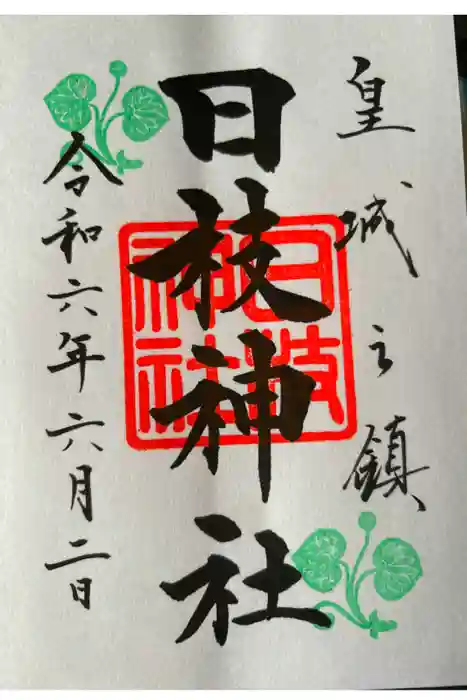 皇城之鎮
日枝神社
日枝神社
令和六年六月二日